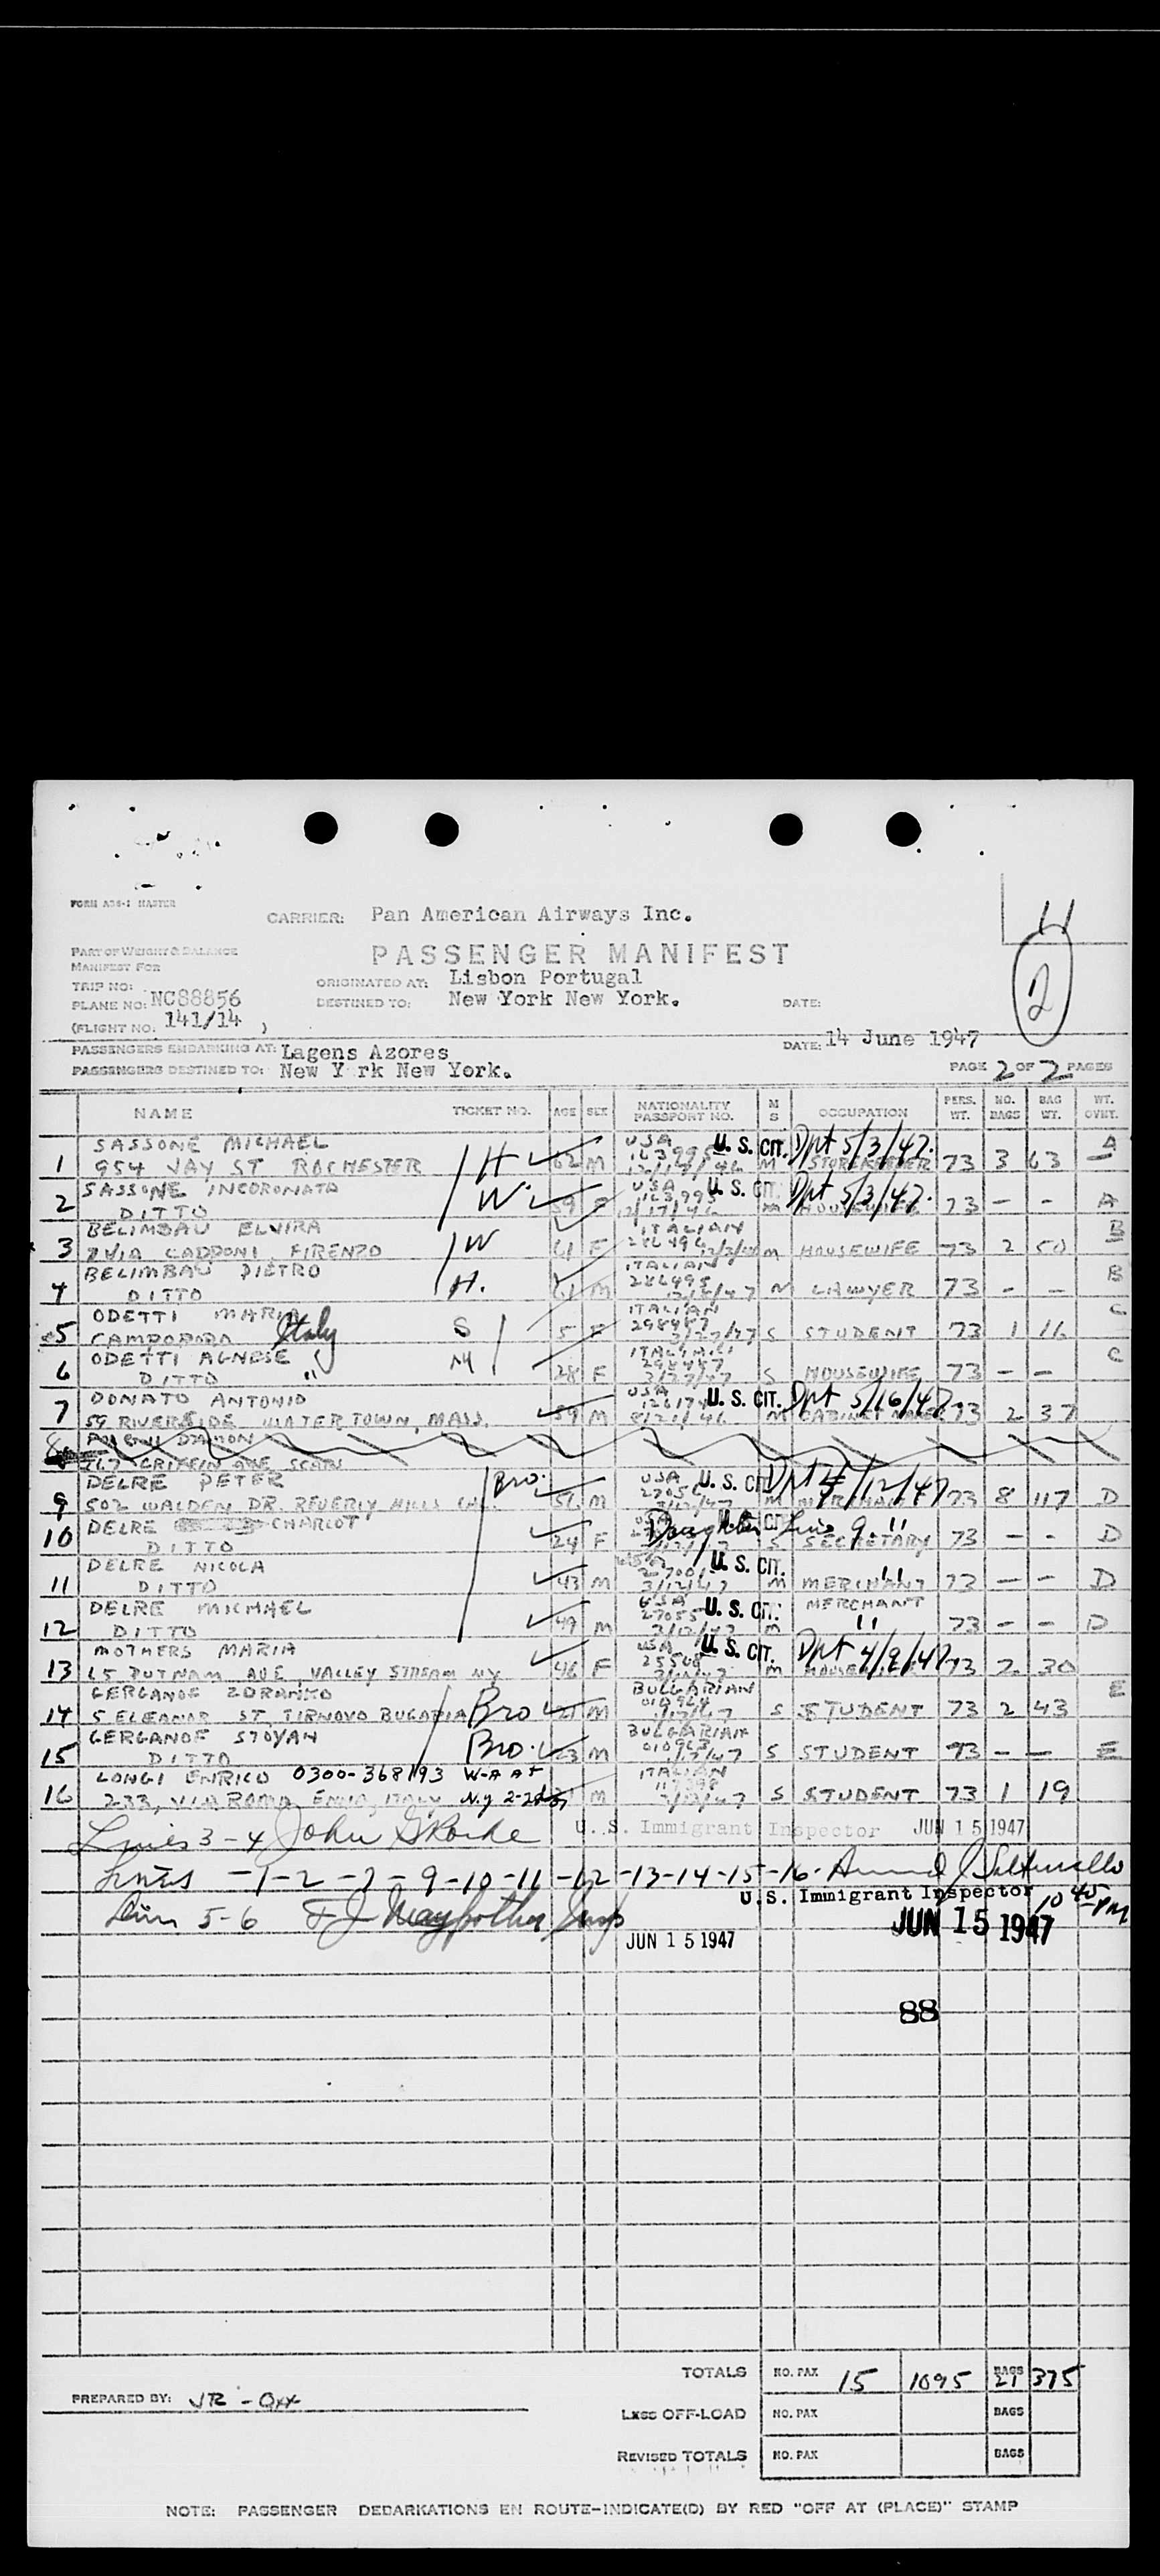 FORM
CARRIER: Pan American Airways Inc.
11
PART OF WEIGHT & BALANCE
MANIFEST FOR
PASSENGER MANIFEST
2
TRIP NO:
ORIGINATED AT: Lisbon Portugal
PLANE NO: NC88856
DESTINED TO: New York New York.
DATE:
(FLIGHT NO. 141/14 )
PASSENGERS EMBARKING AT: Lagens Azores
DATE: 14 June 1947
PASSENGERS DESTINED TO: New Y rk New York.
PAGE 2 OF 2 PAGES
NAME TICKET NO. AGE SEX NATIONALITY PASSPORT NO. M S OCCUPATION PERS. WT. NO. BAGS BAG WT. WT. OVHT.
SASSONE MICHAEL USA U. S. CIT. Dpt 5/3/47. A
1 954 JAY ST ROCHESTER H 62 M M STOREKEEPER 73 3 63
SASSONE INCORONATA USA U. S. CIT. Dpt 5/3/47.
2 DITTO W. 59 F M HOUSEWIFE 73 - - A
BELIMBAU ELVIRA ITALIAN B
3 VIA CAPPONI, FIRENZO W 61 F M HOUSEWIFE 73 2 50
BELIMBAU PIETRO ITALIAN B
4 DITTO H. 61 M 286495 M LAWYER 73 - -
ODETTI MARIA ITALIAN C
5 Italy S 5 F 298487 S STUDENT 73 1 16
ODETTI AGNESE " ITALIAN C
6 DITTO M 28 F 298487 S HOUSEWIFE 73 - -
DONATO ANTONIO USA U. S. CIT. Dpt 5/16/47
7 59 RIVERSIDE WATERTOWN, MASS. 59 M M CABINET MAKER 73 2 37
8
767 GRIFFIN AVE
DELRE PETER Bro. USA U. S. CIT. Dpt 4/12/47
9 502 WALDEN DR. BEVERLY HILLS CAL. 56 M M MERCHANT 73 8 117 D
DELRE CHARLOT U. S. CIT. Daughter Line 9. 11
10 DITTO 24 F S SECRETARY 73 - - D
DELRE NICOLA USA U. S. CIT. 11
11 DITTO 43 M 3/12/47 M MERCHANT 73 - - D
DELRE MICHAEL USA 27055 U. S. CIT. MERCHANT
12 DITTO 49 M 3/12/47 M 11 73 - - D
MOTHERS MARIA USA U. S. CIT. Dpt 4/9/47
13 65 PUTNAM AVE, VALLEY STREAM NY 46 F 25508 M HOUSEWIFE 73 2 30
GERGANOF ZDRAVKO BULGARIAN E
14 5 ELEANOR ST TIRNOVO BUGARIA Bro M 010964 S STUDENT 73 2 43
GERGANOF STOYAN BULGARIAN
15 DITTO Bro. 23 M 010963 S STUDENT 73 - - E
LONGI ENRICO 0300-368193 ITALIAN
16 233, VIA ROMA ENNA, ITALY N.Y M S STUDENT 73 1 19
Lines 3-4 John U. S. Immigrant Inspector JUN 15 1947
Lines -1-2-7-9-10-11-12-13-14-15-16.
U.S. Immigrant Inspector 10 45 PM
Lin 5-6 F J Insp
JUN 15 1947
JUN 15 1947
88
TOTALS NO. PAX 15 1095 BAGS 21 375
PREPARED BY: JR -
LESS OFF-LOAD NO. PAX BAGS
REVISED TOTALS NO. PAX BAGS
NOTE: PASSENGER DEBARKATIONS EN ROUTE-INDICATE(D) BY RED "OFF AT (PLACE)" STAMP